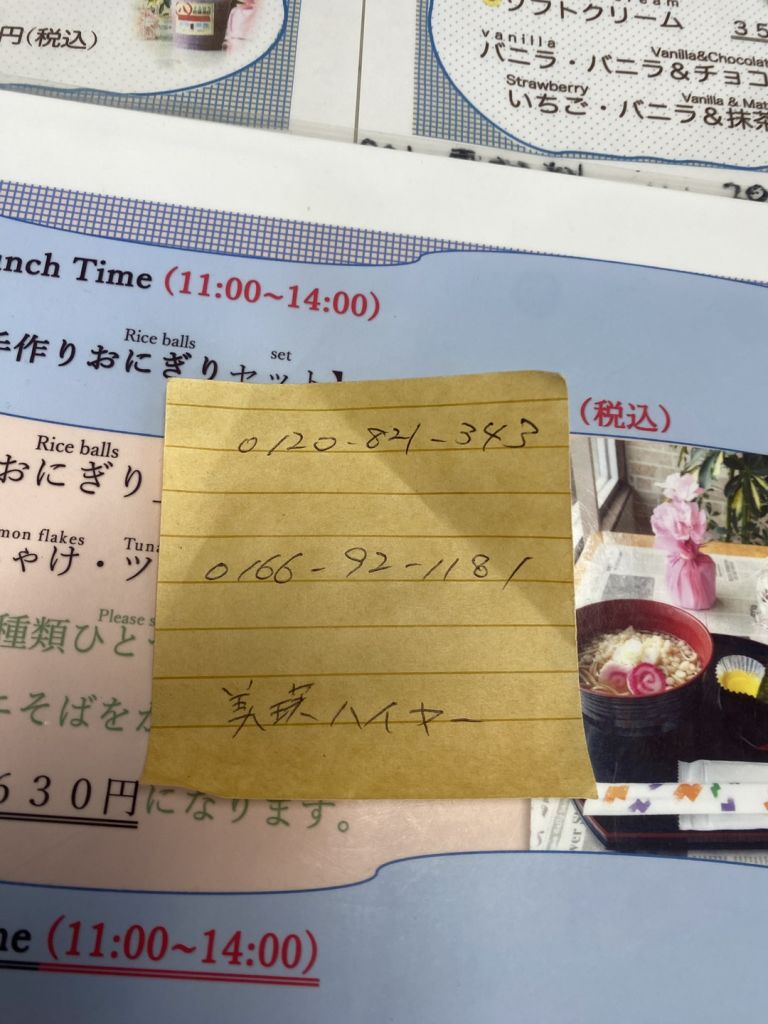 円(税込)
ソフトクリーム
35
vanilla
Vanilla&Chocolat
バニラ・バニラ&チョコ
Strawberry
Vanilla & Mat
いちご・バニラ&抹茶
unch Time (11:00~14:00)
Rice balls set
手作りおにぎりセット】
(税込)
Rice balls
おにぎり
mon flakes Tuna
ゃけ・ツ
Please s
種類ひと
ニそばをか
630円になります。
0120-821-343
0166-92-1181
美瑛ハイヤー
me (11:00~14:00)